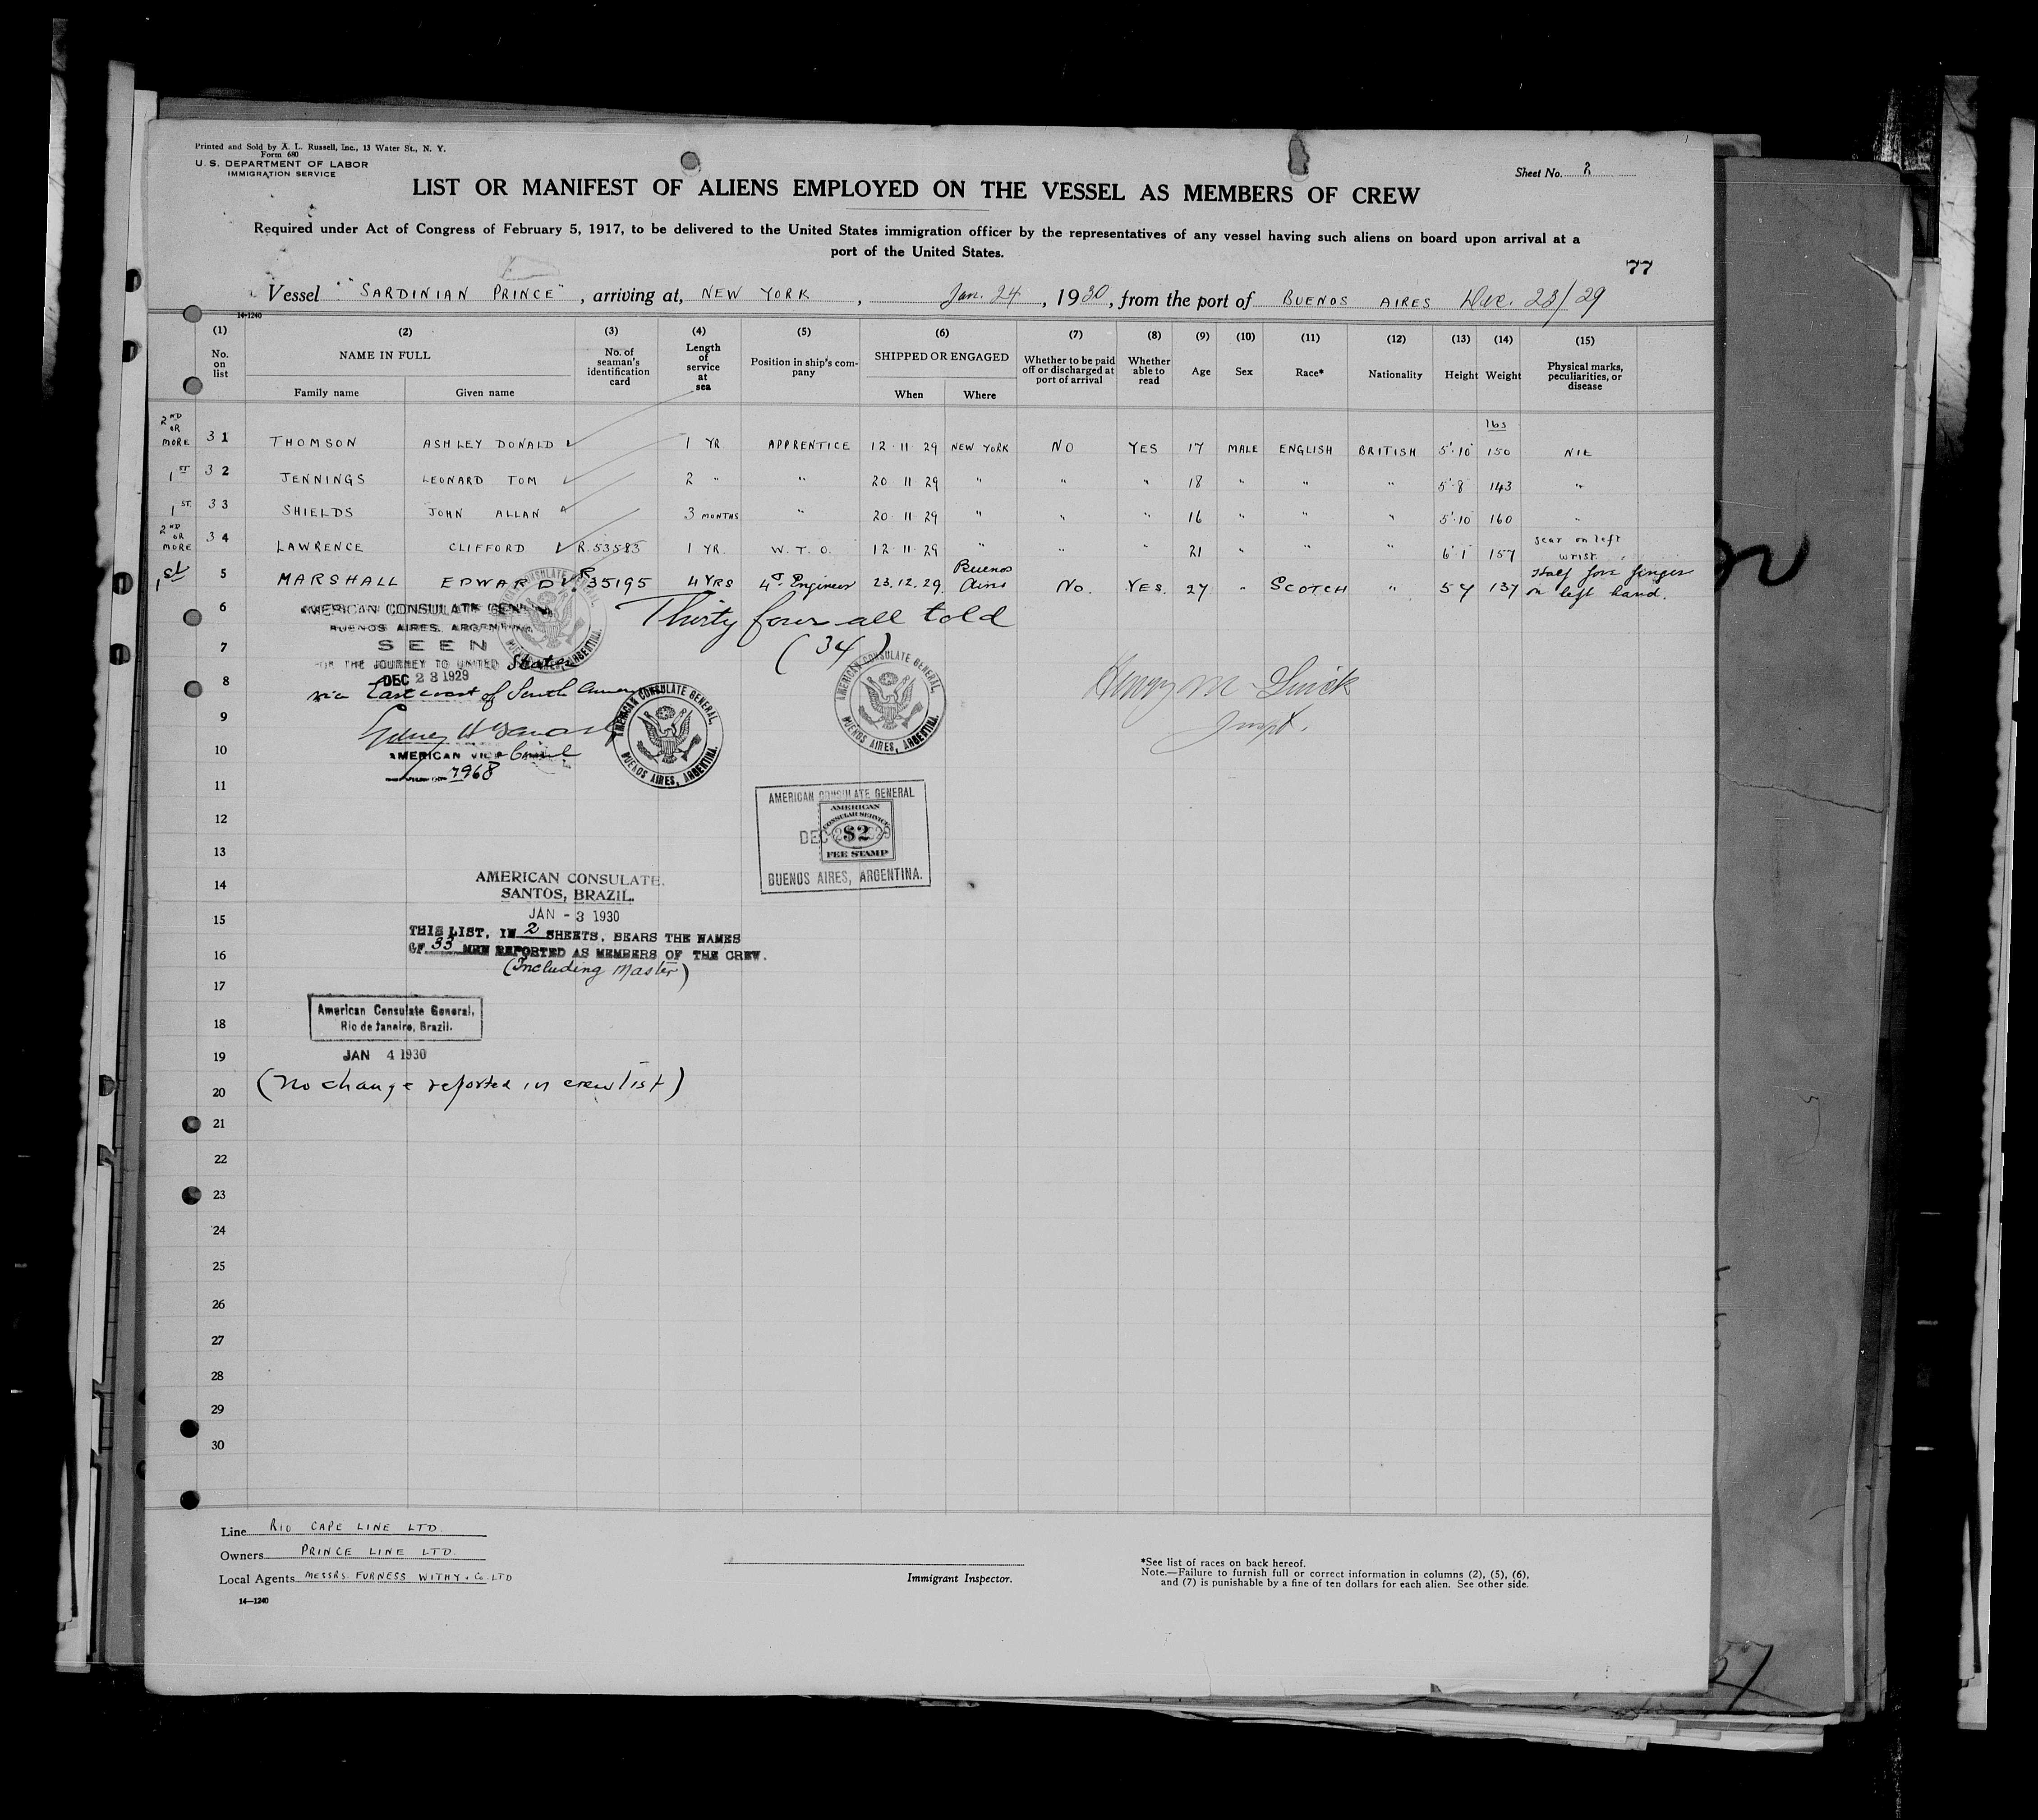 Printed and Sold by A. L. Russell, Inc., 13 Water St., N. Y.
Form 680
U. S. DEPARTMENT OF LABOR
IMMIGRATION SERVICE
Sheet No. 2
LIST OR MANIFEST OF ALIENS EMPLOYED ON THE VESSEL AS MEMBERS OF CREW
Required under Act of Congress of February 5, 1917, to be delivered to the United States immigration officer by the representatives of any vessel having such aliens on board upon arrival at a
port of the United States.
77
Vessel "SARDINIAN PRINCE", arriving at, NEW YORK, Jan. 24, 1930, from the port of BUENOS AIRES Dec. 23/29
14-1240
(1) (2) (3) (4) (5) (6) (7) (8) (9) (10) (11) (12) (13) (14) (15)
No. on list NAME IN FULL Family name Given name No. of seaman's identification card Length of service at sea Position in ship's company SHIPPED OR ENGAGED When Where Whether to be paid off or discharged at port of arrival Whether able to read Age Sex Race* Nationality Height Weight Physical marks, peculiarities, or disease
lbs
2ND OR MORE 31 THOMSON ASHLEY DONALD 1 YR APPRENTICE 12 11 29 NEW YORK NO YES 17 MALE ENGLISH BRITISH 5'10 150 NIL
1ST 32 JENNINGS LEONARD TOM 2 " " 20 11 29 " " " 18 " " " 5'8 143 "
1ST. 33 SHIELDS JOHN ALLAN 3 MONTHS " 20 11 29 " " " 16 " " " 5'10 160 "
2ND OR MORE 34 LAWRENCE CLIFFORD R.53583 1 YR. W. T. O. 12 11 29 " " " 21 " " " 6'1 157 scar on left wrist
1st 5 MARSHALL EDWARD R 35195 4 YRS 4th Engineer 23.12.29. Buenos Aires No. YES. 27 " SCOTCH " 5 7 137 Half fore finger on left hand.
6
AMERICAN CONSULATE GENERAL
BUENOS AIRES, ARGENTINA
Thirty four all told
(34)
7
SEEN
FOR THE JOURNEY TO UNITED States
8
DEC 23 1929
via East coast of South America
AMERICAN CONSULATE GENERAL, BUENOS AIRES, ARGENTINA.
AMERICAN CONSULATE GENERAL, BUENOS AIRES, ARGENTINA.
Henry M
Inspt.
9
10
AMERICAN VICE Consul
7968
11
AMERICAN CONSULATE GENERAL
12
AMERICAN
CONSULAR SERVICE
DEC
$2
FEE STAMP
13
BUENOS AIRES, ARGENTINA.
14
AMERICAN CONSULATE.
SANTOS, BRAZIL.
15
JAN - 3 1930
THIS LIST, IN 2 SHEETS, BEARS THE NAMES
16
OF 33 MEN REPORTED AS MEMBERS OF THE CREW.
(Including Master)
17
18
American Consulate General,
Rio de Janeiro, Brazil.
19
JAN 4 1930
20
(No change reported in crew list)
21
22
23
24
25
26
27
28
29
30
Line RIO CAPE LINE LTD.
Owners PRINCE LINE LTD.
Local Agents MESSRS. FURNESS WITHY & Co. LTD
14—1240
Immigrant Inspector.
*See list of races on back hereof.
Note.—Failure to furnish full or correct information in columns (2), (5), (6),
and (7) is punishable by a fine of ten dollars for each alien. See other side.
57